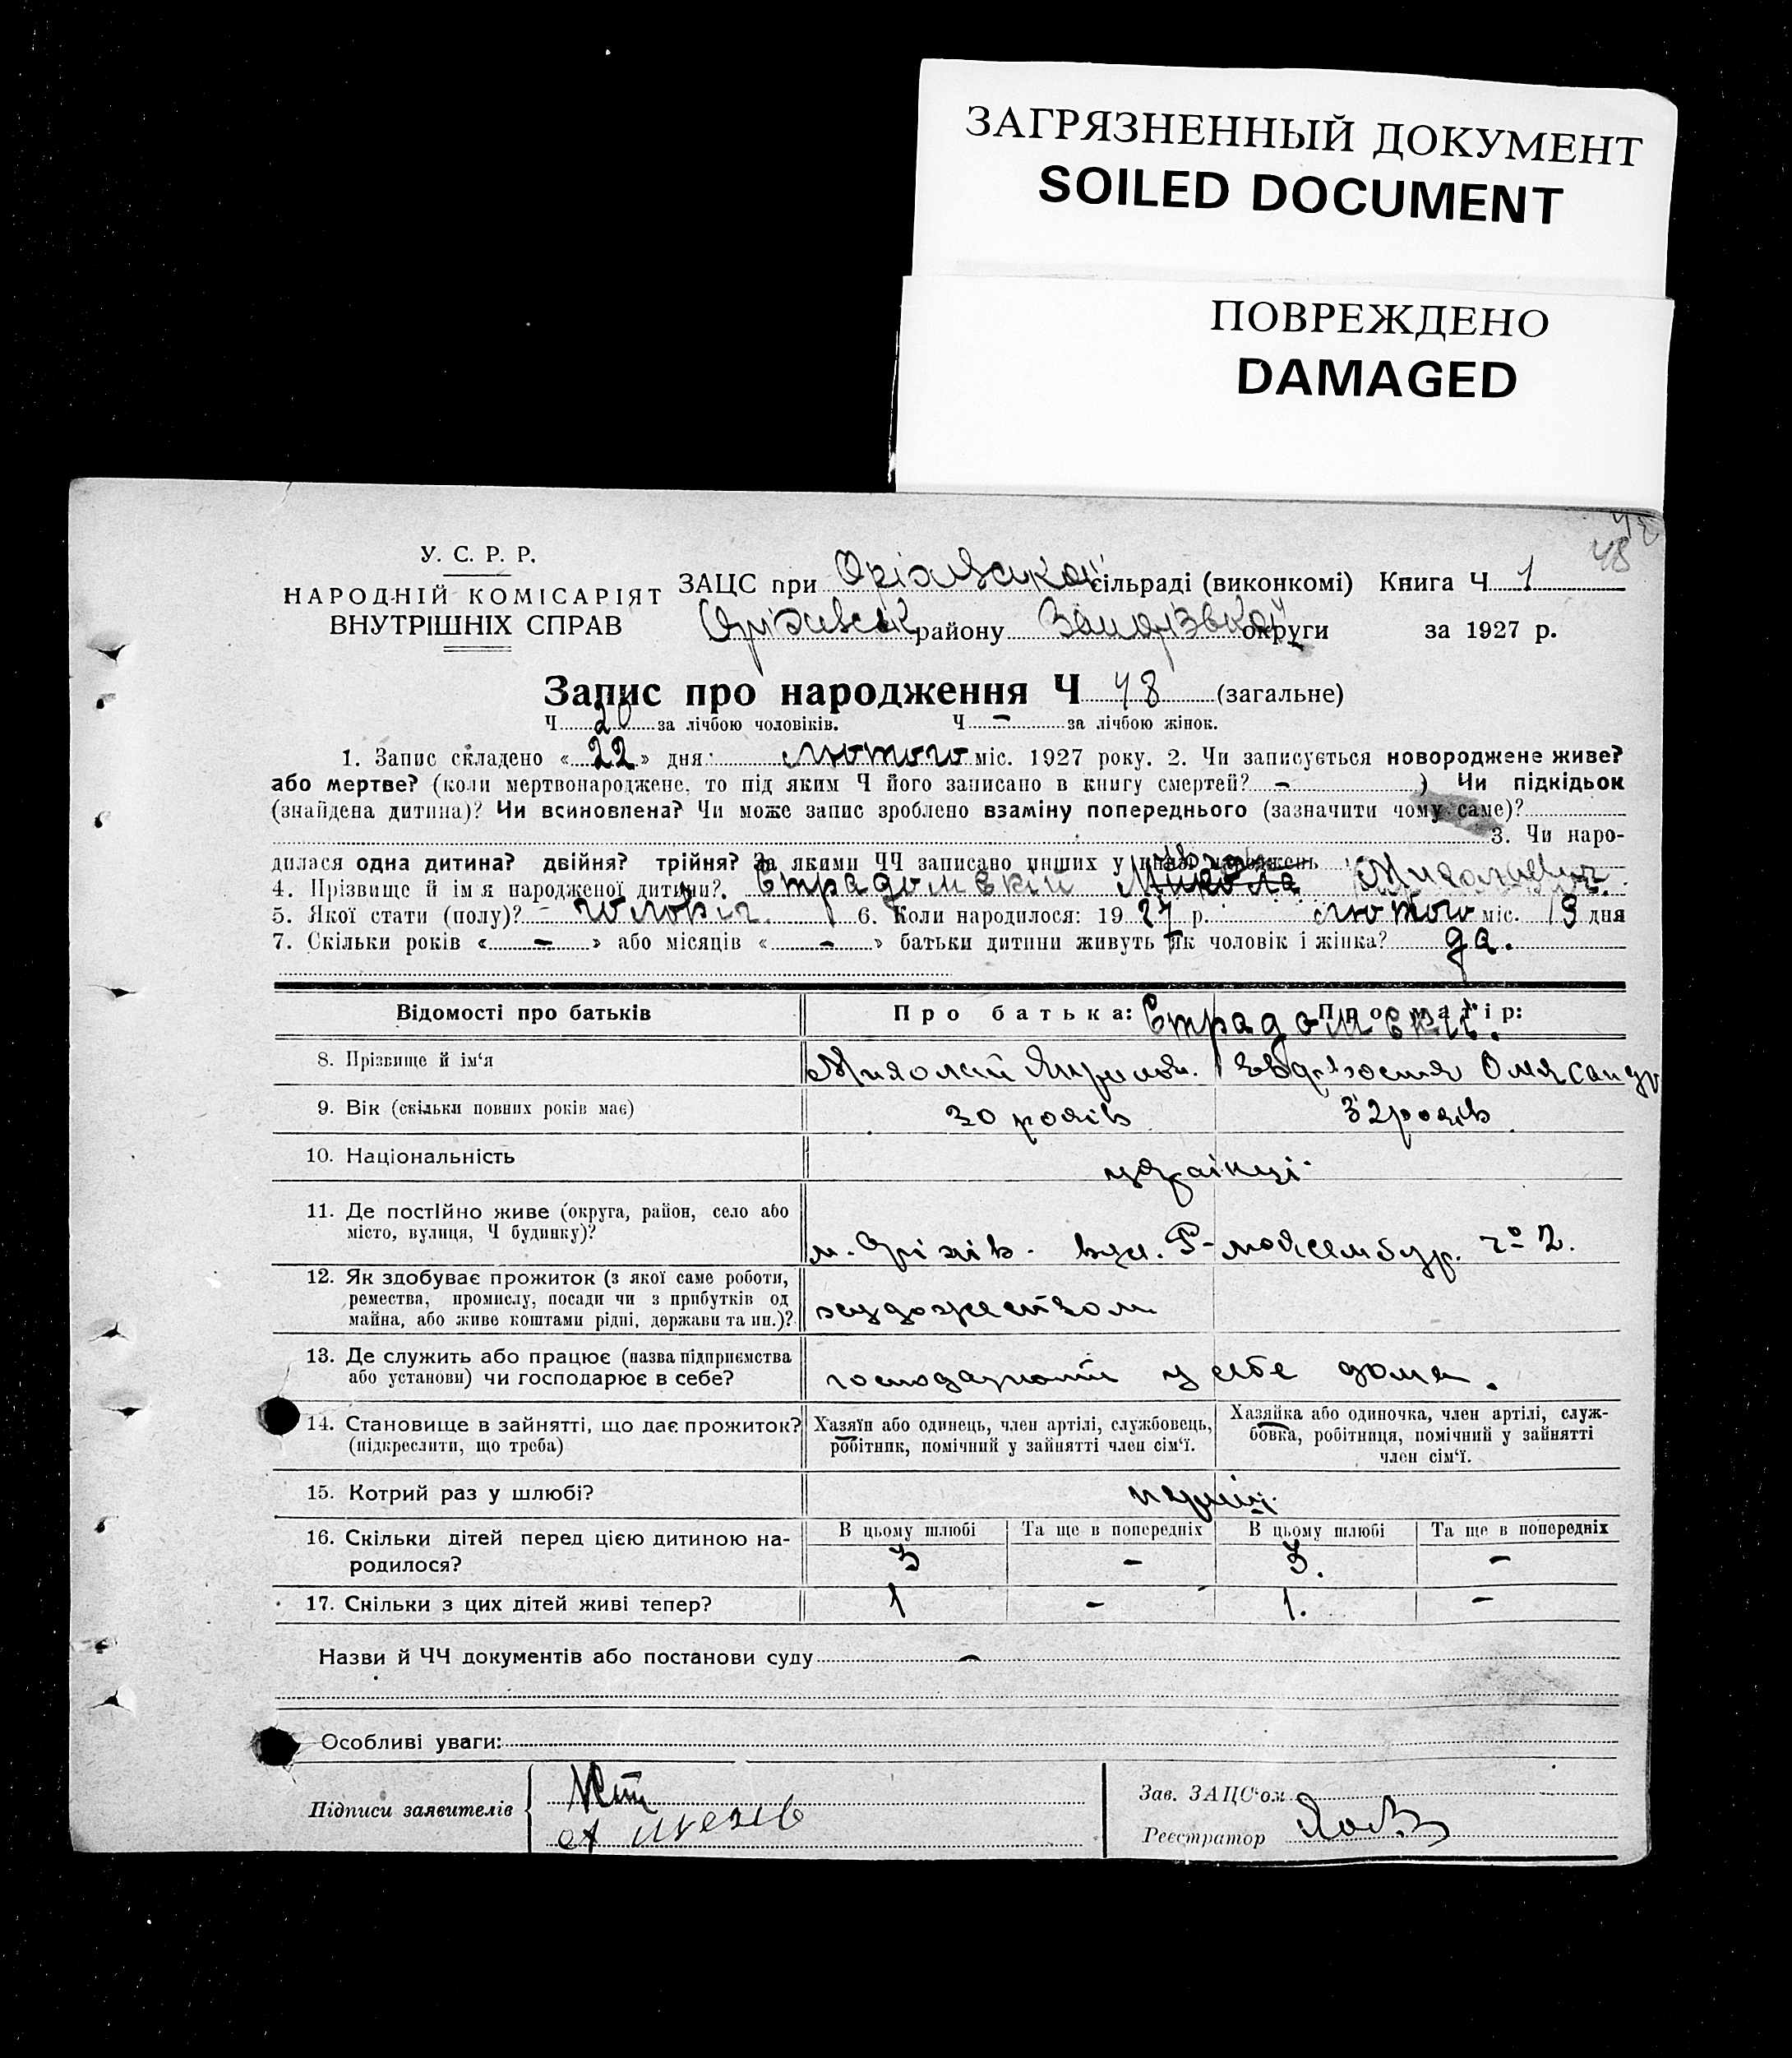 ЗАГРЯЗНЕННЫЙ ДОКУМЕНТ
SOILED DOCUMENT
ПОВРЕЖДЕНО
DAMAGED
48
У. С. Р. Р.
НАРОДНІЙ КОМІСАРІЯТ
ВНУТРІШНІХ СПРАВ
ЗАЦС при Оріхівській сільраді (виконкомі) Книга Ч 1
Оріхівськ району Запорізької округи за 1927 р.
Запис про народження Ч 48 (загальне)
Ч 20 за лічбою чоловіків. Ч — за лічбою жінок.
1. Запис складено «22» дня лютого міс. 1927 року. 2. Чи записується новороджене живе?
або мертве? (коли мертвонароджене, то під яким Ч його записано в книгу смертей? — ) Чи підкідьок
(знайдена дитина)? Чи всиновлена? Чи може запис зроблено взаміну попереднього (зазначити чому саме)?
3. Чи наро-
дилася одна дитина? двійня? трійня? За якими ЧЧ записано инших у
4. Прізвище й ім'я народженої дитини? Страдомскій Микола
5. Якої стати (полу)? чоловіч. 6. Коли народилося: 1927 р. лютого міс. 13 дня
7. Скільки років « — » або місяців « — » батьки дитини живуть як чоловік і жінка? да.
Відомості про батьків
Про батька: Страдомскі. Про матір:
8. Прізвище й ім'я
9. Вік (скільки повних років має) 30 років 32 років
10. Національність українці.
11. Де постійно живе (округа, район, село або
місто, вулиця, Ч будинку)?
м. Оріхів. вул. Р-люксембур. № 2.
12. Як здобуває прожиток (з якої саме роботи,
ремества, промислу, посади чи з прибутків од
майна, або живе коштами рідні, держави та ин.)?
художеством
13. Де служить або працює (назва підприємства
або установи) чи господарює в себе?
у себе дома.
14. Становище в зайнятті, що дає прожиток?
(підкреслити, що треба)
Хазяїн або одинець, член артілі, службовець,
робітник, помічний у зайнятті член сім'ї.
Хазяйка або одиночка, член артілі, служ-
бовка, робітниця, помічний у зайнятті
член сім'ї.
15. Котрий раз у шлюбі?
16. Скільки дітей перед цією дитиною на-
родилося?
В цьому шлюбі Та ще в попередніх В цьому шлюбі Та ще в попередніх
3 — 3. —
17. Скільки з цих дітей живі тепер? 1 — 1. —
Назви й ЧЧ документів або постанови суду —
Особливі уваги:
Підписи заявителів
Зав. ЗАЦС'ом
Реєстратор